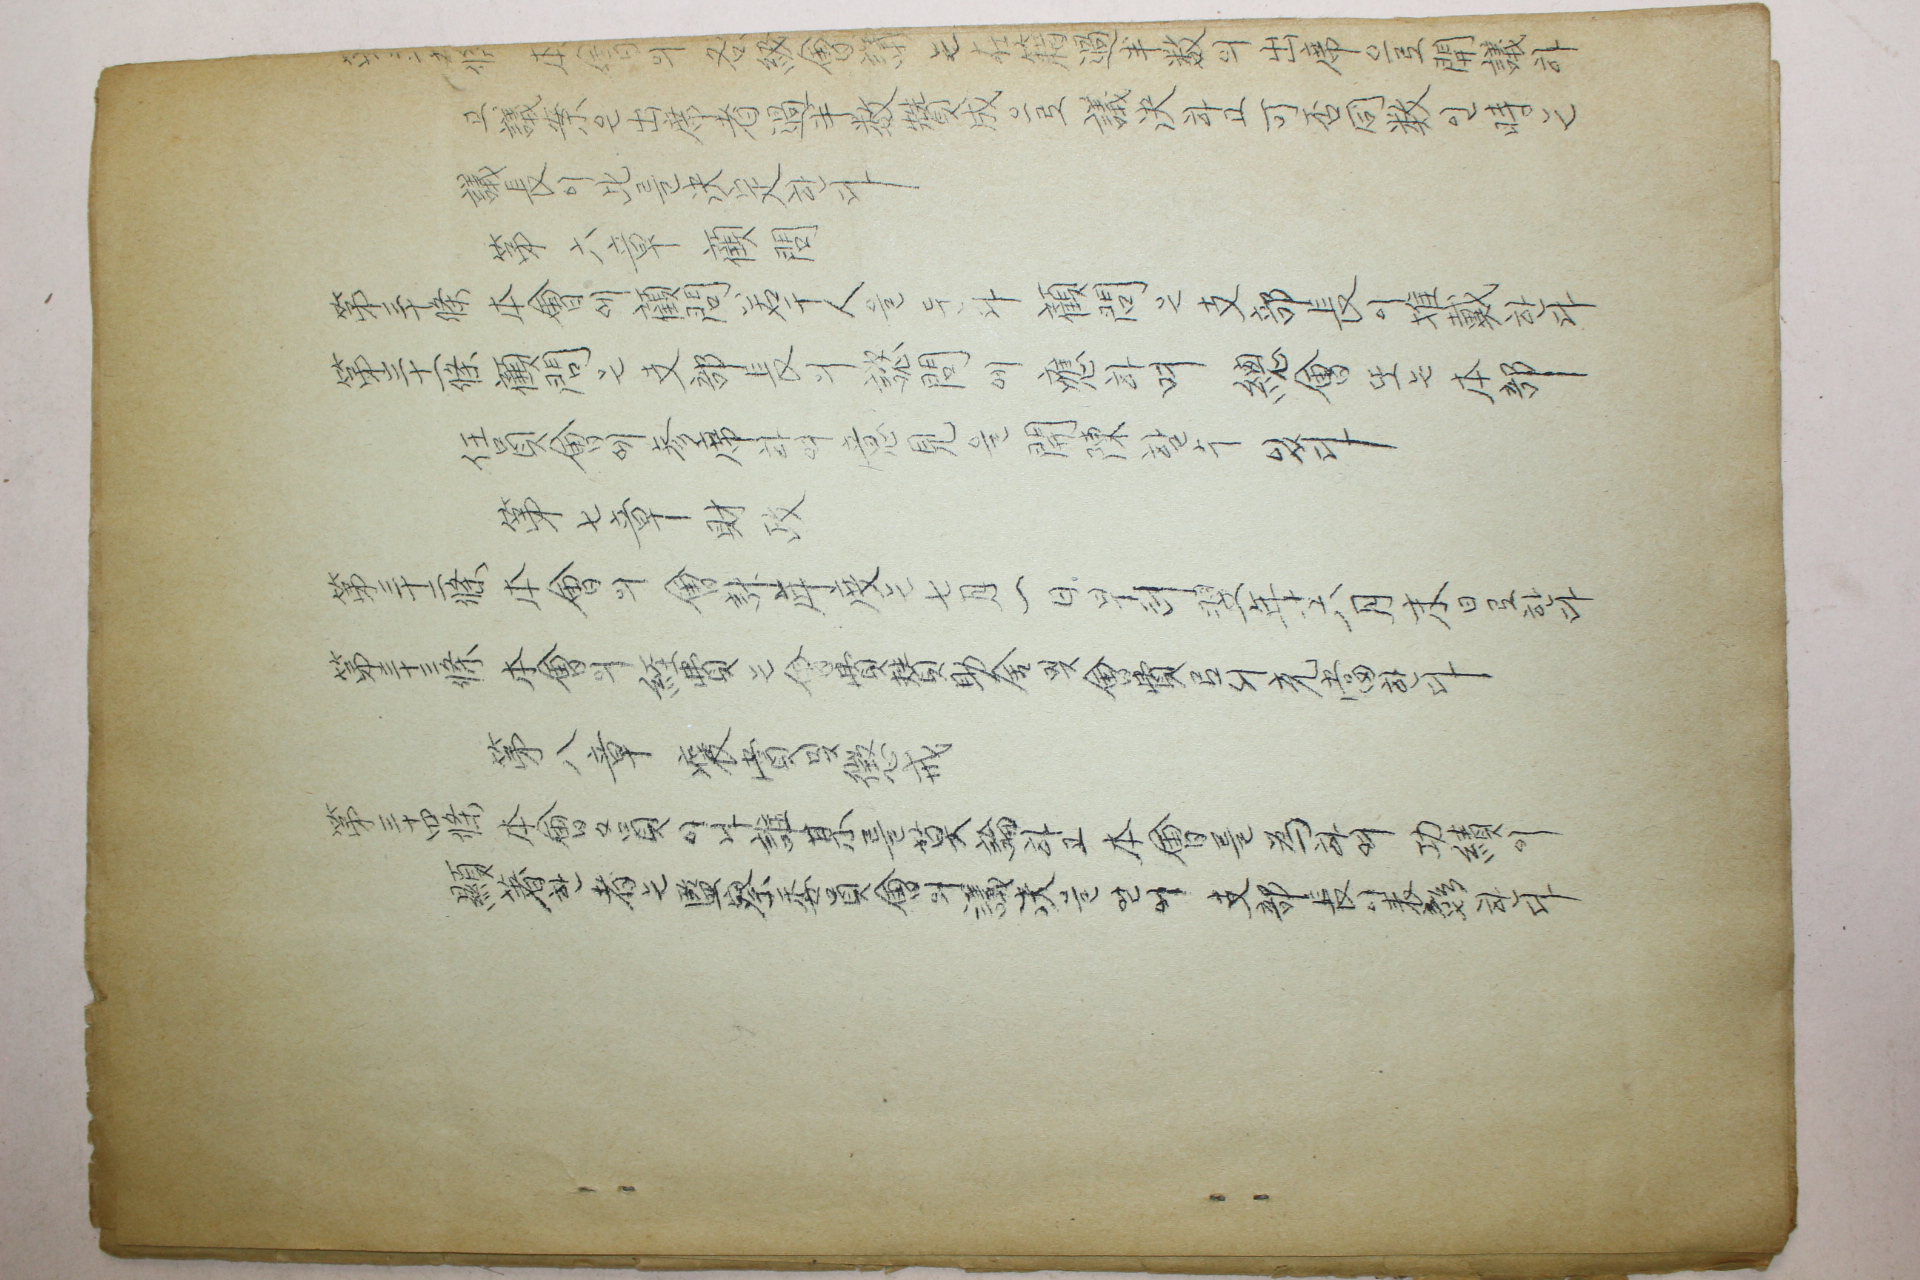 第二十九條 本會의 各級會議는 在籍過半数의 出席으로 開議하
고 議案은 出席者 過半数 贊成으로 議決하고 可否同数인 時는
議長이 此를 決定한다
第六章 顧問
第三十條 本會에 顧問 若干人을 두나 顧問은 支部長이 推戴한다
第三十一條 顧問은 支部長의 諮問에 應하며 總會 또는 本部
任員會에 參席하야 意見을 開陳할 수 있다
第七章 財政
第三十二條 本會의 會計年度는 七月一日부터 翌年 六月末日로 한다
第三十三條 本會의 經費는 會費 贊助金 및 會費로서 充當한다
第八章 褒賞 및 懲戒
第三十四條 本會 會員이나 誰某를 莫論하고 本會를 爲하야 功績이
顯著한 者는 監察委員會의 議決을 얻어 支部長이 表彰한다